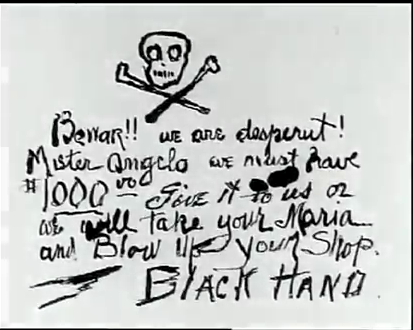 Bewar!! we are desperut!
Mister Angelo we must have
$1000.00 Give it to us or
we will take your Maria
and Blow Up your Shop.
BLACK HAND